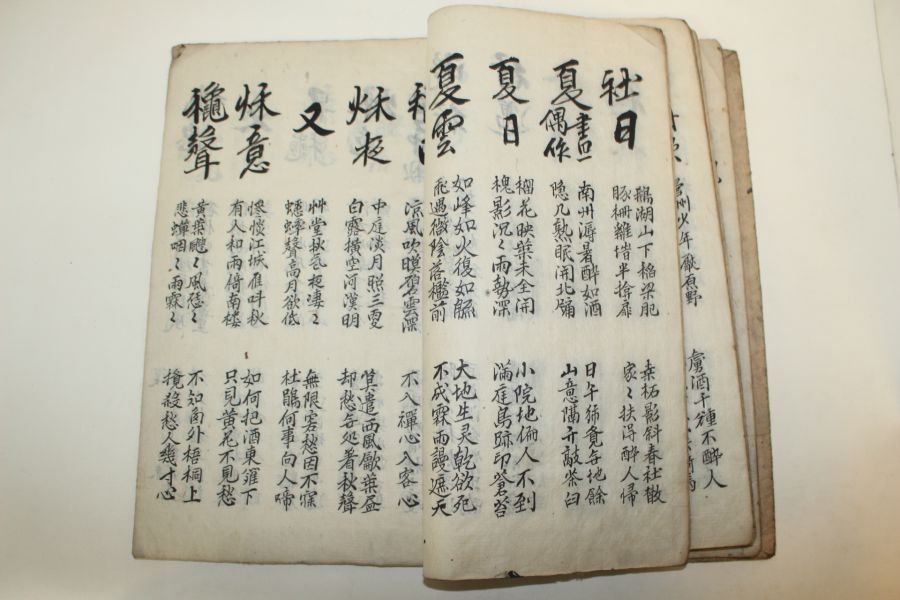 營州少年厭原野
虜酒千鍾不醉人
社日
鵝湖山下稻粱肥
豚柵雞塒半掩扉
桑柘影斜春社散
家々扶得醉人歸
夏晝偶作
南州溽暑醉如酒
隱几熟眠開北牖
日午獨覺无他餘
山童隔竹敲茶臼
夏日
榴花映葉未全開
槐影沉々雨勢深
小院地偏人不到
滿庭鳥跡印蒼苔
夏雲
如峰如火復如綿
飛過微陰落檻前
大地生灵乾欲死
不成霖雨謾遮天
涼風吹暝碧雲深
不入禪心入客心
秌夜
中庭淡月照三更
白露橫空河漢明
莫遣西風歇葉盡
却愁无処着秋聲
又
艸堂秋氣夜凄々
蟋蟀聲高月欲低
無限客愁因不寐
杜鵑何事向人啼
秌意
慘憺江城雁叫秋
有人和雨倚南樓
如何把酒東籬下
只見黃花不見愁
龝聲
黃葉飄々風陰々
悲蟬咽々雨霖々
不知窗外梧桐上
攪殺愁人幾寸心